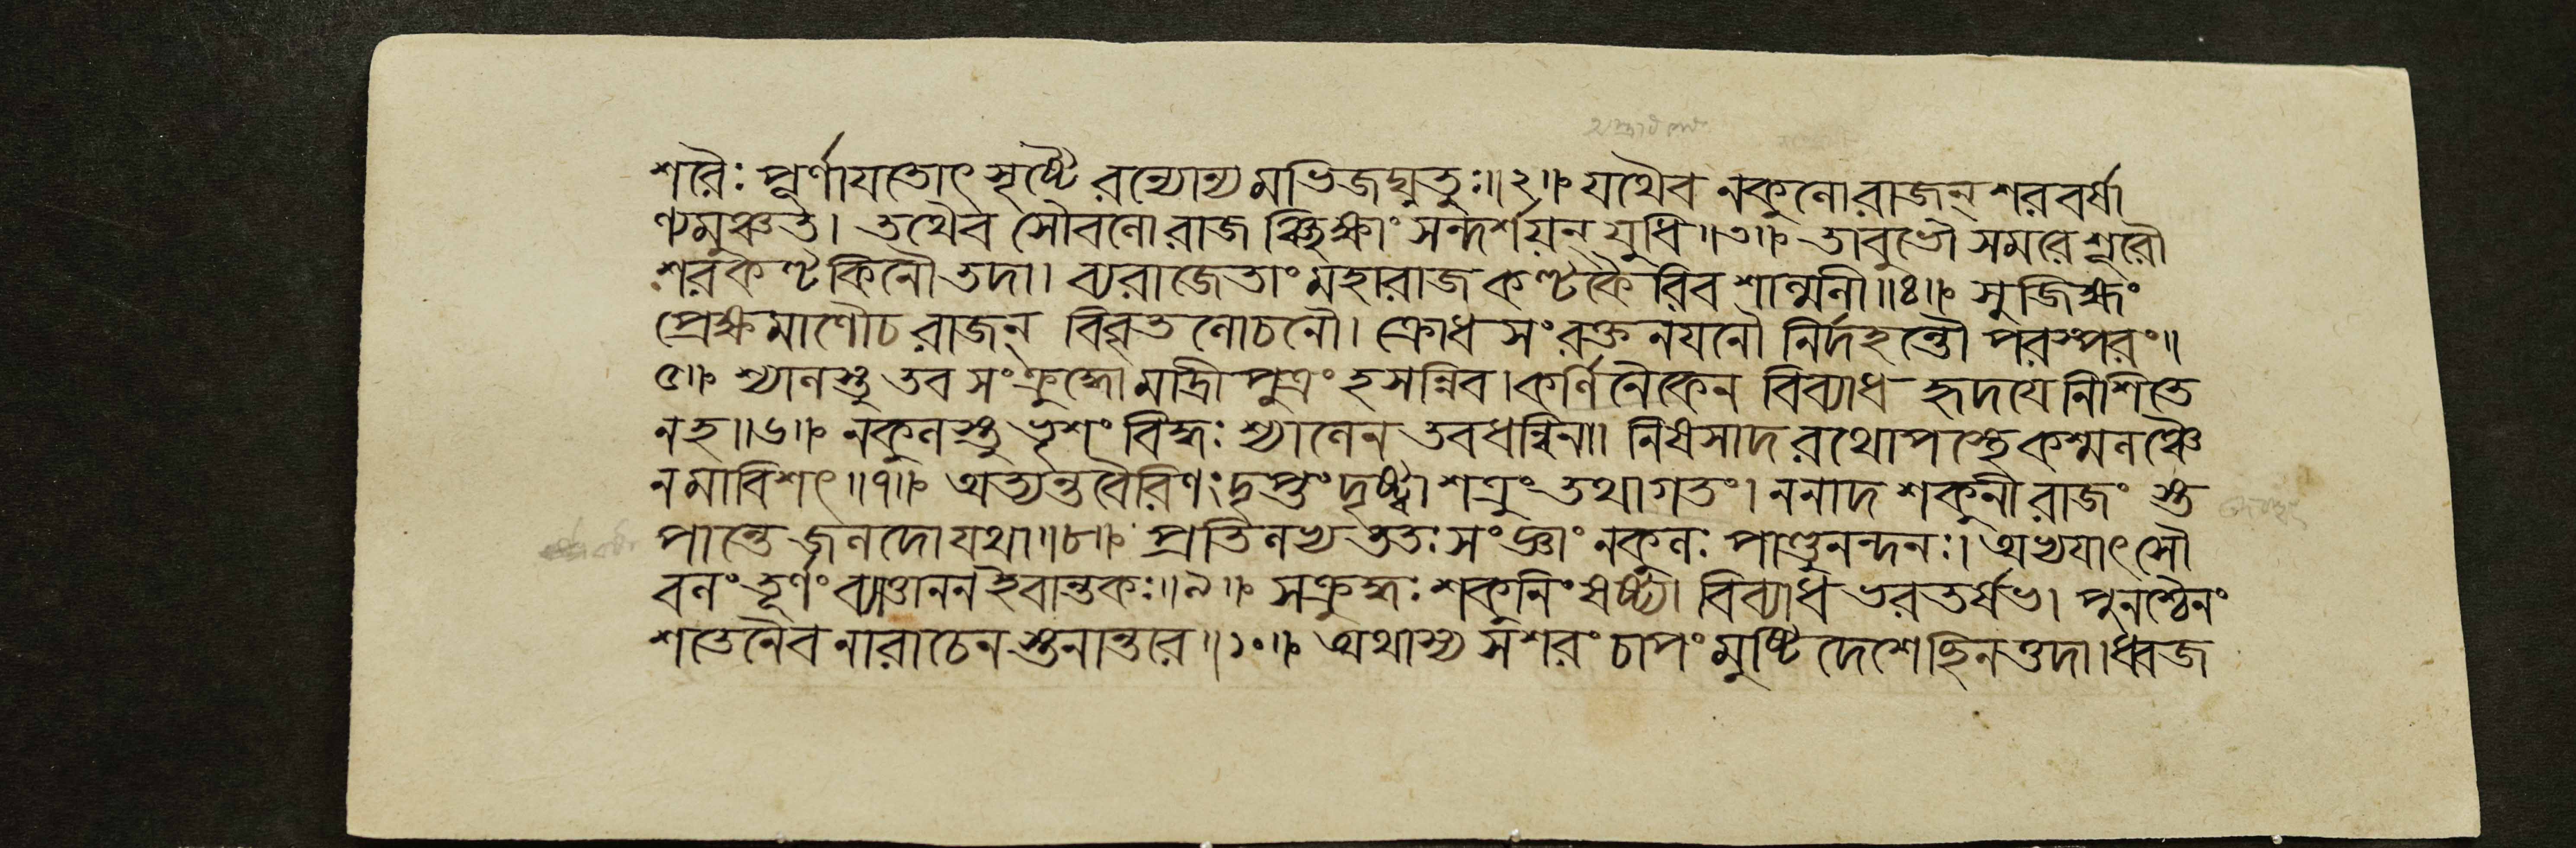 শরৈঃ পূর্ণাযতোৎসৃষ্টৈরন্যোন্যমভিজঘ্নতুঃ॥২॥ যথৈব নকুলো রাজন্ শরবর্ষা
ণ্যমুঞ্চত। তথৈব সৌবলো রাজ ঞ্ছিক্ষাং সন্দর্শয়ন্ যুধি॥৩॥ তাবুভৌ সমরে শূরৌ
শরকণ্টকিনৌ তদা। ব্যরাজেতাং মহারাজ কণ্টকৈরিব শাল্মলী॥৪॥ সুজিহ্মং
প্রেক্ষমাণৌ চ রাজন্ বিবৃতলোচনৌ। ক্রোধসংরক্তনযনৌ নির্দহন্তৌ পরস্পরং॥
৫॥ শ্যালস্তু তব সংক্রুদ্ধো মাদ্রীপুত্রং হসন্নিব। কর্ণিনৈকেন বিব্যাধ হৃদযে নিশিতে
ন হ॥৬॥ নকুলস্তু ভৃশং বিদ্ধঃ শ্যালেন তব ধন্বিনা॥ নিষসাদ রথোপস্থে কশ্মলঞ্চৈ
নমাবিশৎ॥৭॥ অত্যন্তবৈরিণং দৃপ্তং দৃষ্ট্বা শত্রুং তথাগতং। ননাদ শকুনী রাজং স্ত
পান্তে জলদো যথা॥৮॥ প্রতিলভ্য ততঃ সংজ্ঞাং নকুলঃ পাণ্ডুনন্দনঃ। অভ্যযাৎ সৌ
বলং তূর্ণং ব্যাত্তানন ইবান্তকঃ॥৯॥ সক্রুদ্ধঃ শকুনিং ষষ্ট্যা বিব্যাধ ভরতর্ষভ। পুনশ্চৈনং
শতেনৈব নারাচেন স্তনান্তরে॥১০॥ অথাস্য সশরং চাপং মুষ্টিদেশেছিনত্তদা। ধ্বজ